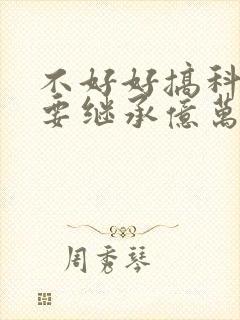 不好好搞科
要继承億萬
周秀琴